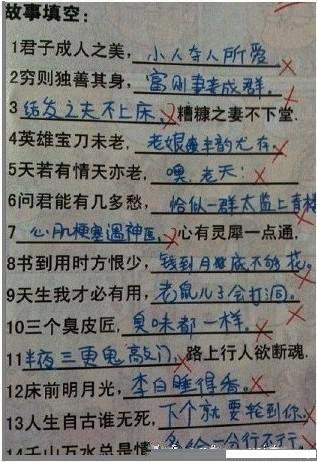 故事填空：
1君子成人之美，小人夺人所爱 ×
2穷则独善其身，富则妻妾成群。 ×
3结发之夫不上床，×糟糠之妻不下堂.
4英雄宝刀未老，老娘风韵尤存。 ×
5天若有情天亦老，噢，老天! ×
6问君能有几多愁，恰似一群太监上青楼 ×
7心肌梗塞遇神医，×心有灵犀一点通，
8书到用时方恨少，钱到月底不够花。 ×
9天生我才必有用，老鼠儿子会打洞。 ×
10三个臭皮匠，臭味都一样。 ×
11半夜三更鬼敲门，×路上行人欲断魂.
12床前明月光，李白睡得香。 ×
13人生自古谁无死，下个就要轮到你 ×
14千山万水总是情 多给一分行不行。